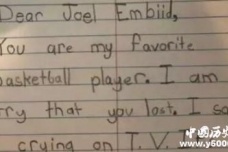 Dear Joel Embiid,
You are my favorite
basketball player. I am
rry that you lost. I sa
crying on T.V.